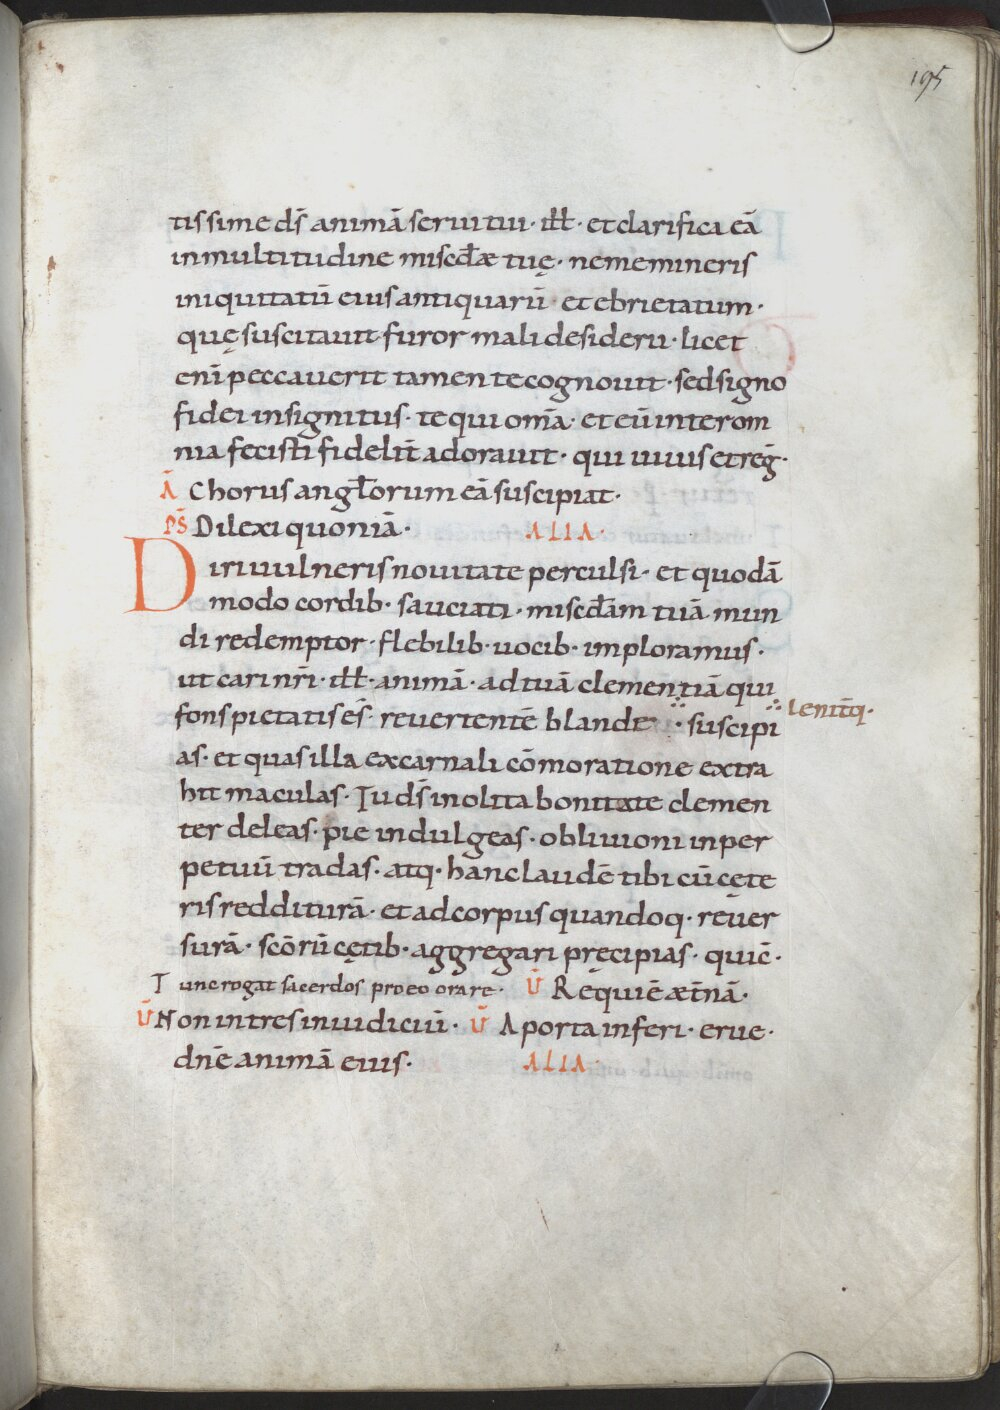 195
tissime ds̄ animā serui tui · ill̄ · et clarifica eā
in multitudine miscd̄æ tuę · ne memineris
iniquitatū eius antiquarū · et ebrietatum ·
quę suscitauit furor mali desiderii · licet
enī peccauerit tamen te cognouit · sed signo
fidei insignitus · te qui om̄a · et eū inter om
nia fecisti fidelit̄ adorauit · qui uiuis et reḡ ·
Ā Chorus angl̄orum eā suscipiat ·
PS̄ Dilexi quoniā · ALIA ·
Diri uulneris nouitate perculsi · et quodā
modo cordib · sauciati · miscd̄am tuā mun
di redemptor · flebilib · uocib · imploramus ·
ut cari nr̄i · ill̄ · animā · ad tuā clementiā qui
fons pietatis es̄ · reuertentē blande ∴ suscipi ∴ lenitq̄ ·
as · et quas illa ex carnali cōmoratione extra
hit maculas · Tu ds̄ inolita bonitate clemen
ter deleas · pie indulgeas · obliuioni in per
petuū tradas · atq · hanc laudē tibi cū cęte
ris redditurā · et ad corpus quandoq · reuer
surā · scōrū cętib · aggregari pręcipias · quic̄ ·
Tunc rogat sacerdos pro eo orare · V̄ Requiē æt̄nā ·
V̄ Non intres in iudiciū · V̄ A porta inferi · erue ·
dn̄e animā eius · ALIA ·